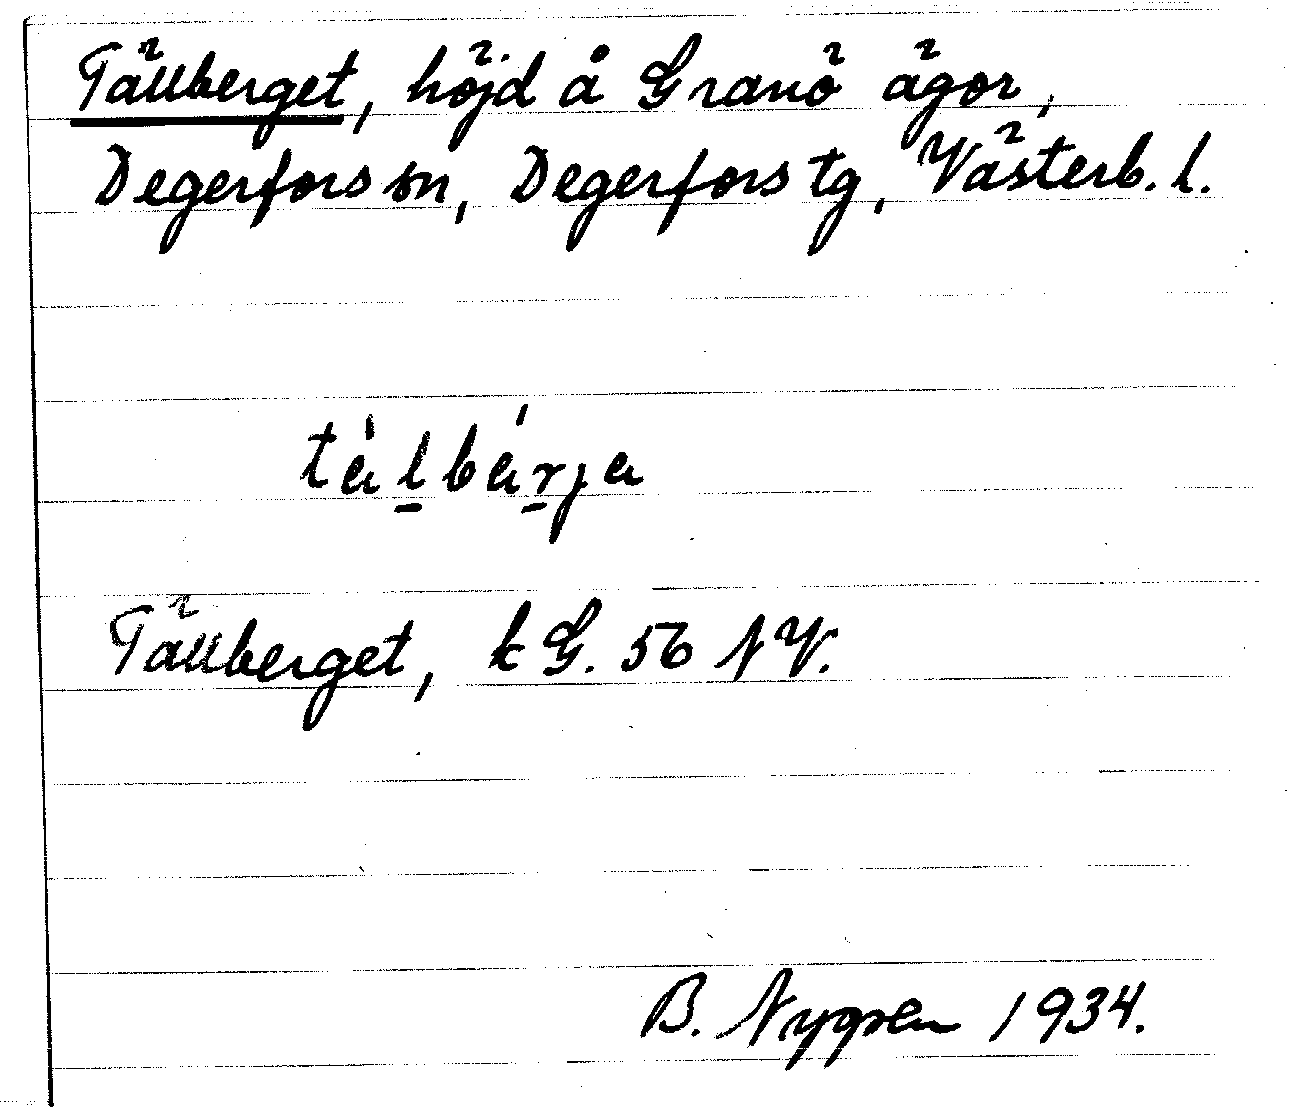 Tällberget, höjd å Granö ägor,
Degerfors sn, Degerfors tg, Västerb. l.
tàl̠bár̠ja
Tällberget, kG. 56 NV.
B. Nygren 1934.